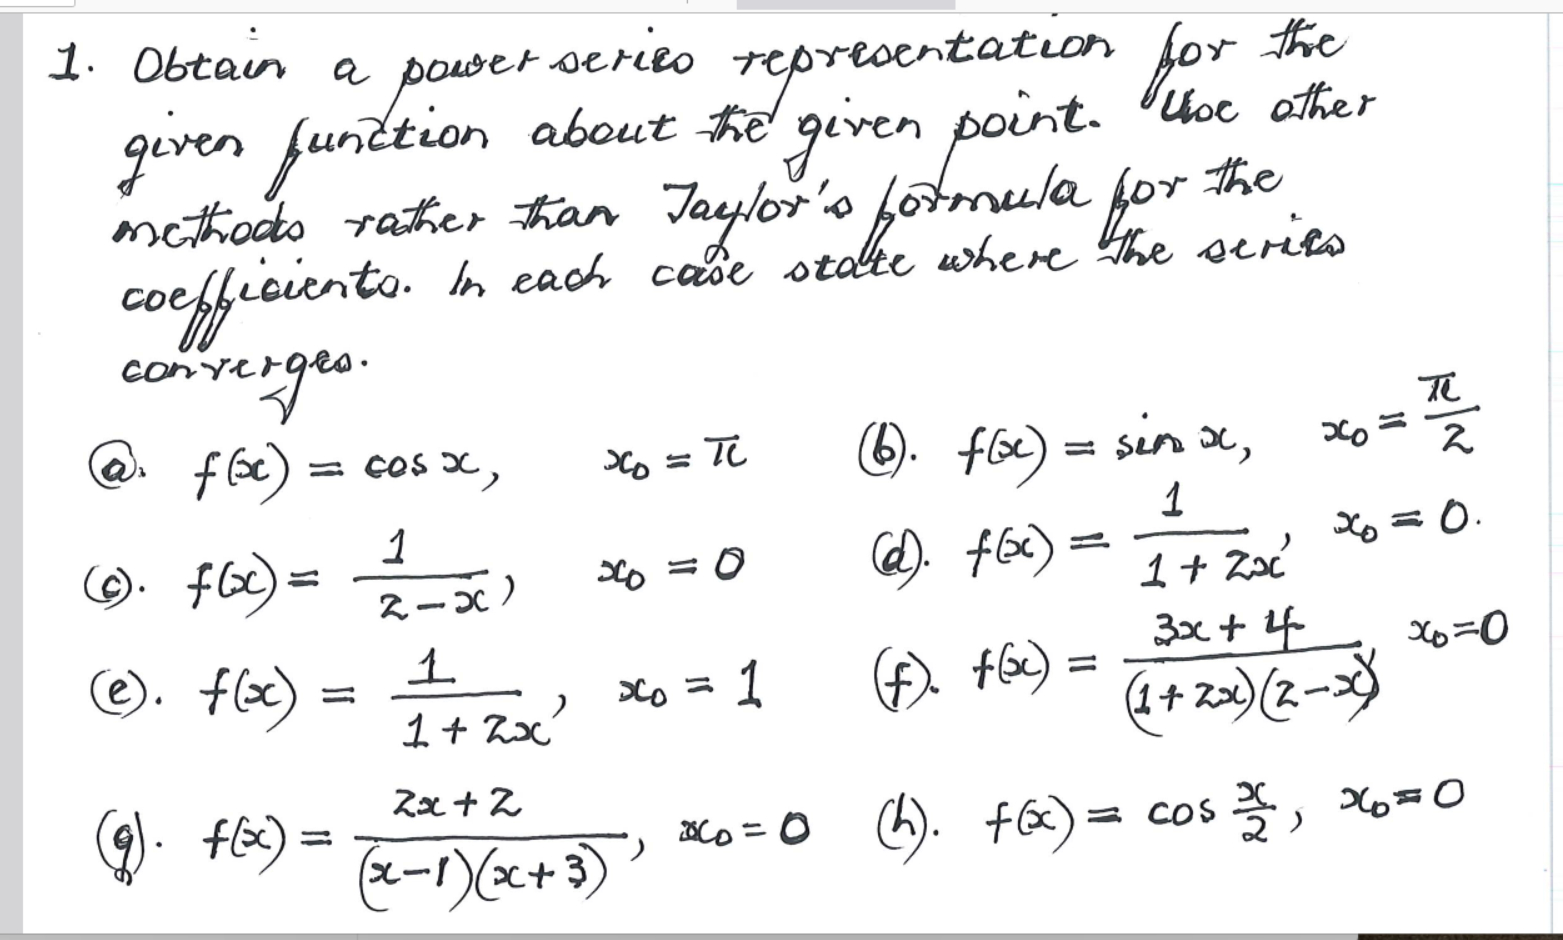 1. Obtain a power series representation for the
given function about the given point. Use other
methods rather than Taylor's formula for the
coefficients. In each case state where the series
converges.
(a). f(x) = cos x, x₀ = π (b). f(x) = sin x, x₀ = π/2
(c). f(x) = 1/(2-x), x₀ = 0 (d). f(x) = 1/(1+2x), x₀ = 0.
(e). f(x) = 1/(1+2x), x₀ = 1 (f). f(x) = (3x+4)/((1+2x)(2-x)), x₀=0
(g). f(x) = (2x+2)/((x-1)(x+3)), x₀=0 (h). f(x) = cos x/2, x₀=0